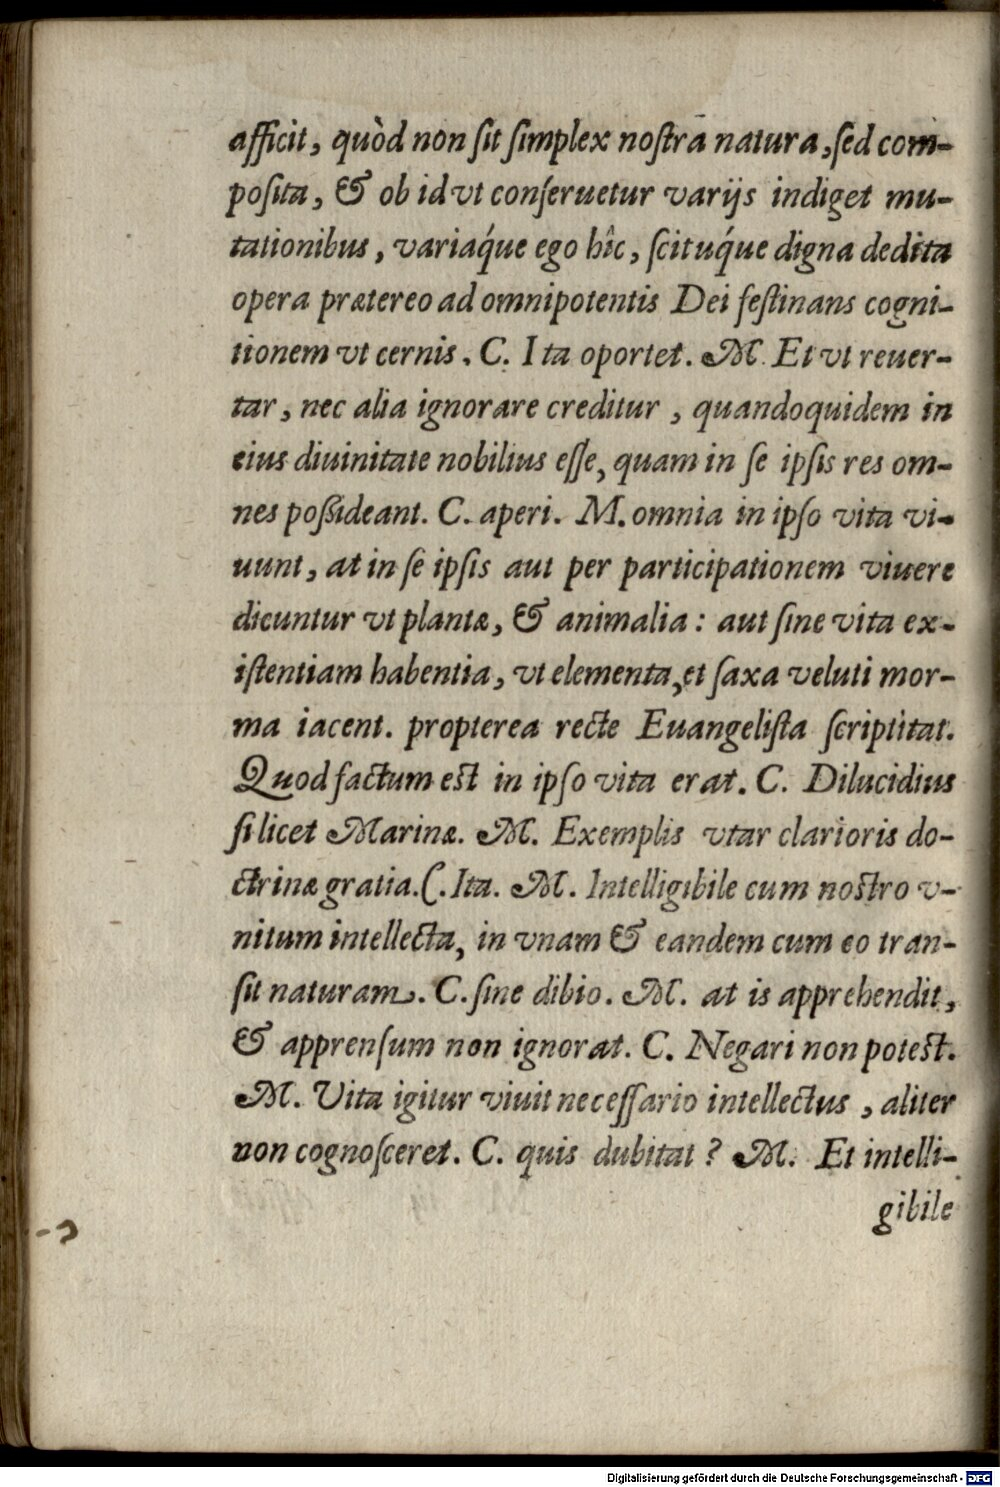 afficit, quòd non ſit ſimplex noſtra natura, ſed com-
poſita, & ob id vt conſeruetur varijs indiget mu-
tationibus, variaq́ue ego hîc, ſcituq́ue digna dedita
opera prætereo ad omnipotentis Dei feſtinans cogni-
tionem vt cernis. C. Ita oportet. M. Et vt reuer-
tar, nec alia ignorare creditur, quandoquidem in
eius diuinitate nobilius eſſe, quam in ſe ipſis res om-
nes poßideant. C. aperi. M. omnia in ipſo vita vi-
uunt, at in ſe ipſis aut per participationem viuere
dicuntur vt plantæ, & animalia: aut ſine vita ex-
iſtentiam habentia, vt elementa, et ſaxa veluti mor-
ma iacent. propterea recte Euangeliſta ſcriptitat.
Quod factum est in ipſo vita erat. C. Dilucidius
ſi licet Marinæ. M. Exemplis vtar clarioris do-
ctrinæ gratia. C. Ita. M. Intelligibile cum nostro v-
nitum intellecta, in vnam & eandem cum eo tran-
ſit naturam. C. ſine dibio. M. at is apprehendit,
& apprenſum non ignorat. C. Negari non potest.
M. Vita igitur viuit neceſſario intellectus, aliter
non cognoſceret. C. quis dubitat? M. Et intelli-
gibile
Digitalisierung gefördert durch die Deutsche Forschungsgemeinschaft - DFG